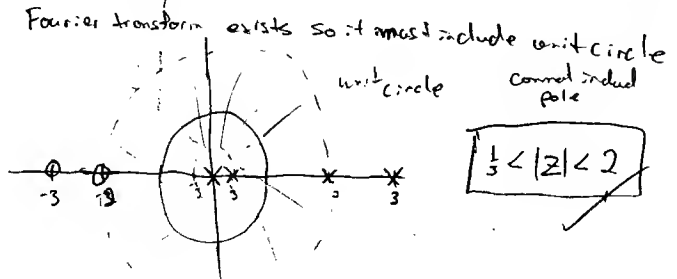 Fourier transform exists so it must include unit circle
unit circle
cannot includ
pole
1/3 < |z| < 2
-3 1/3 2 3